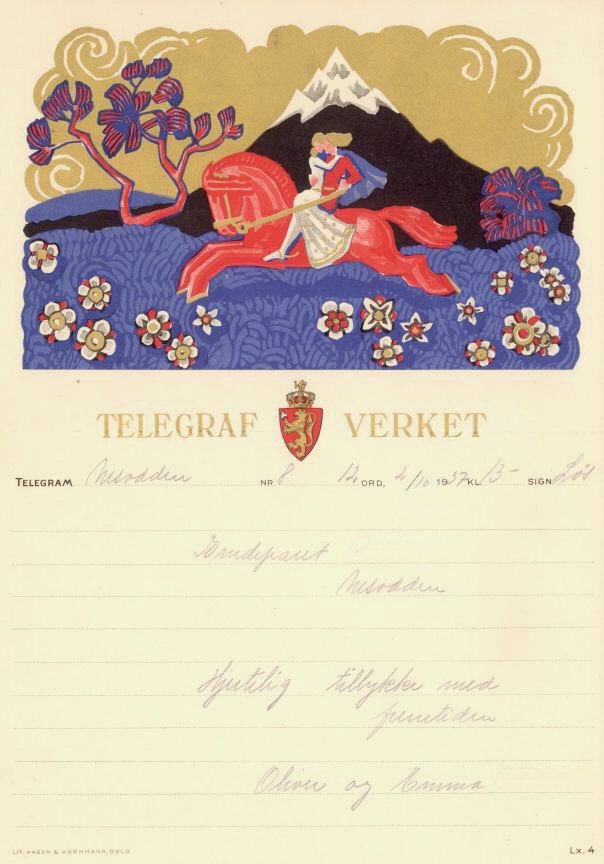 TELEGRAF VERKET
TELEGRAM Nesodden NR. 8 12 ORD, 2/10 1937 KL. 13- SIGN.
Brudeparet
Nesodden
Hjertelig tillykke med
fremtiden
Oliver og Emma
LIT. HAGEN & KORNMANN, OSLO
Lx. 4